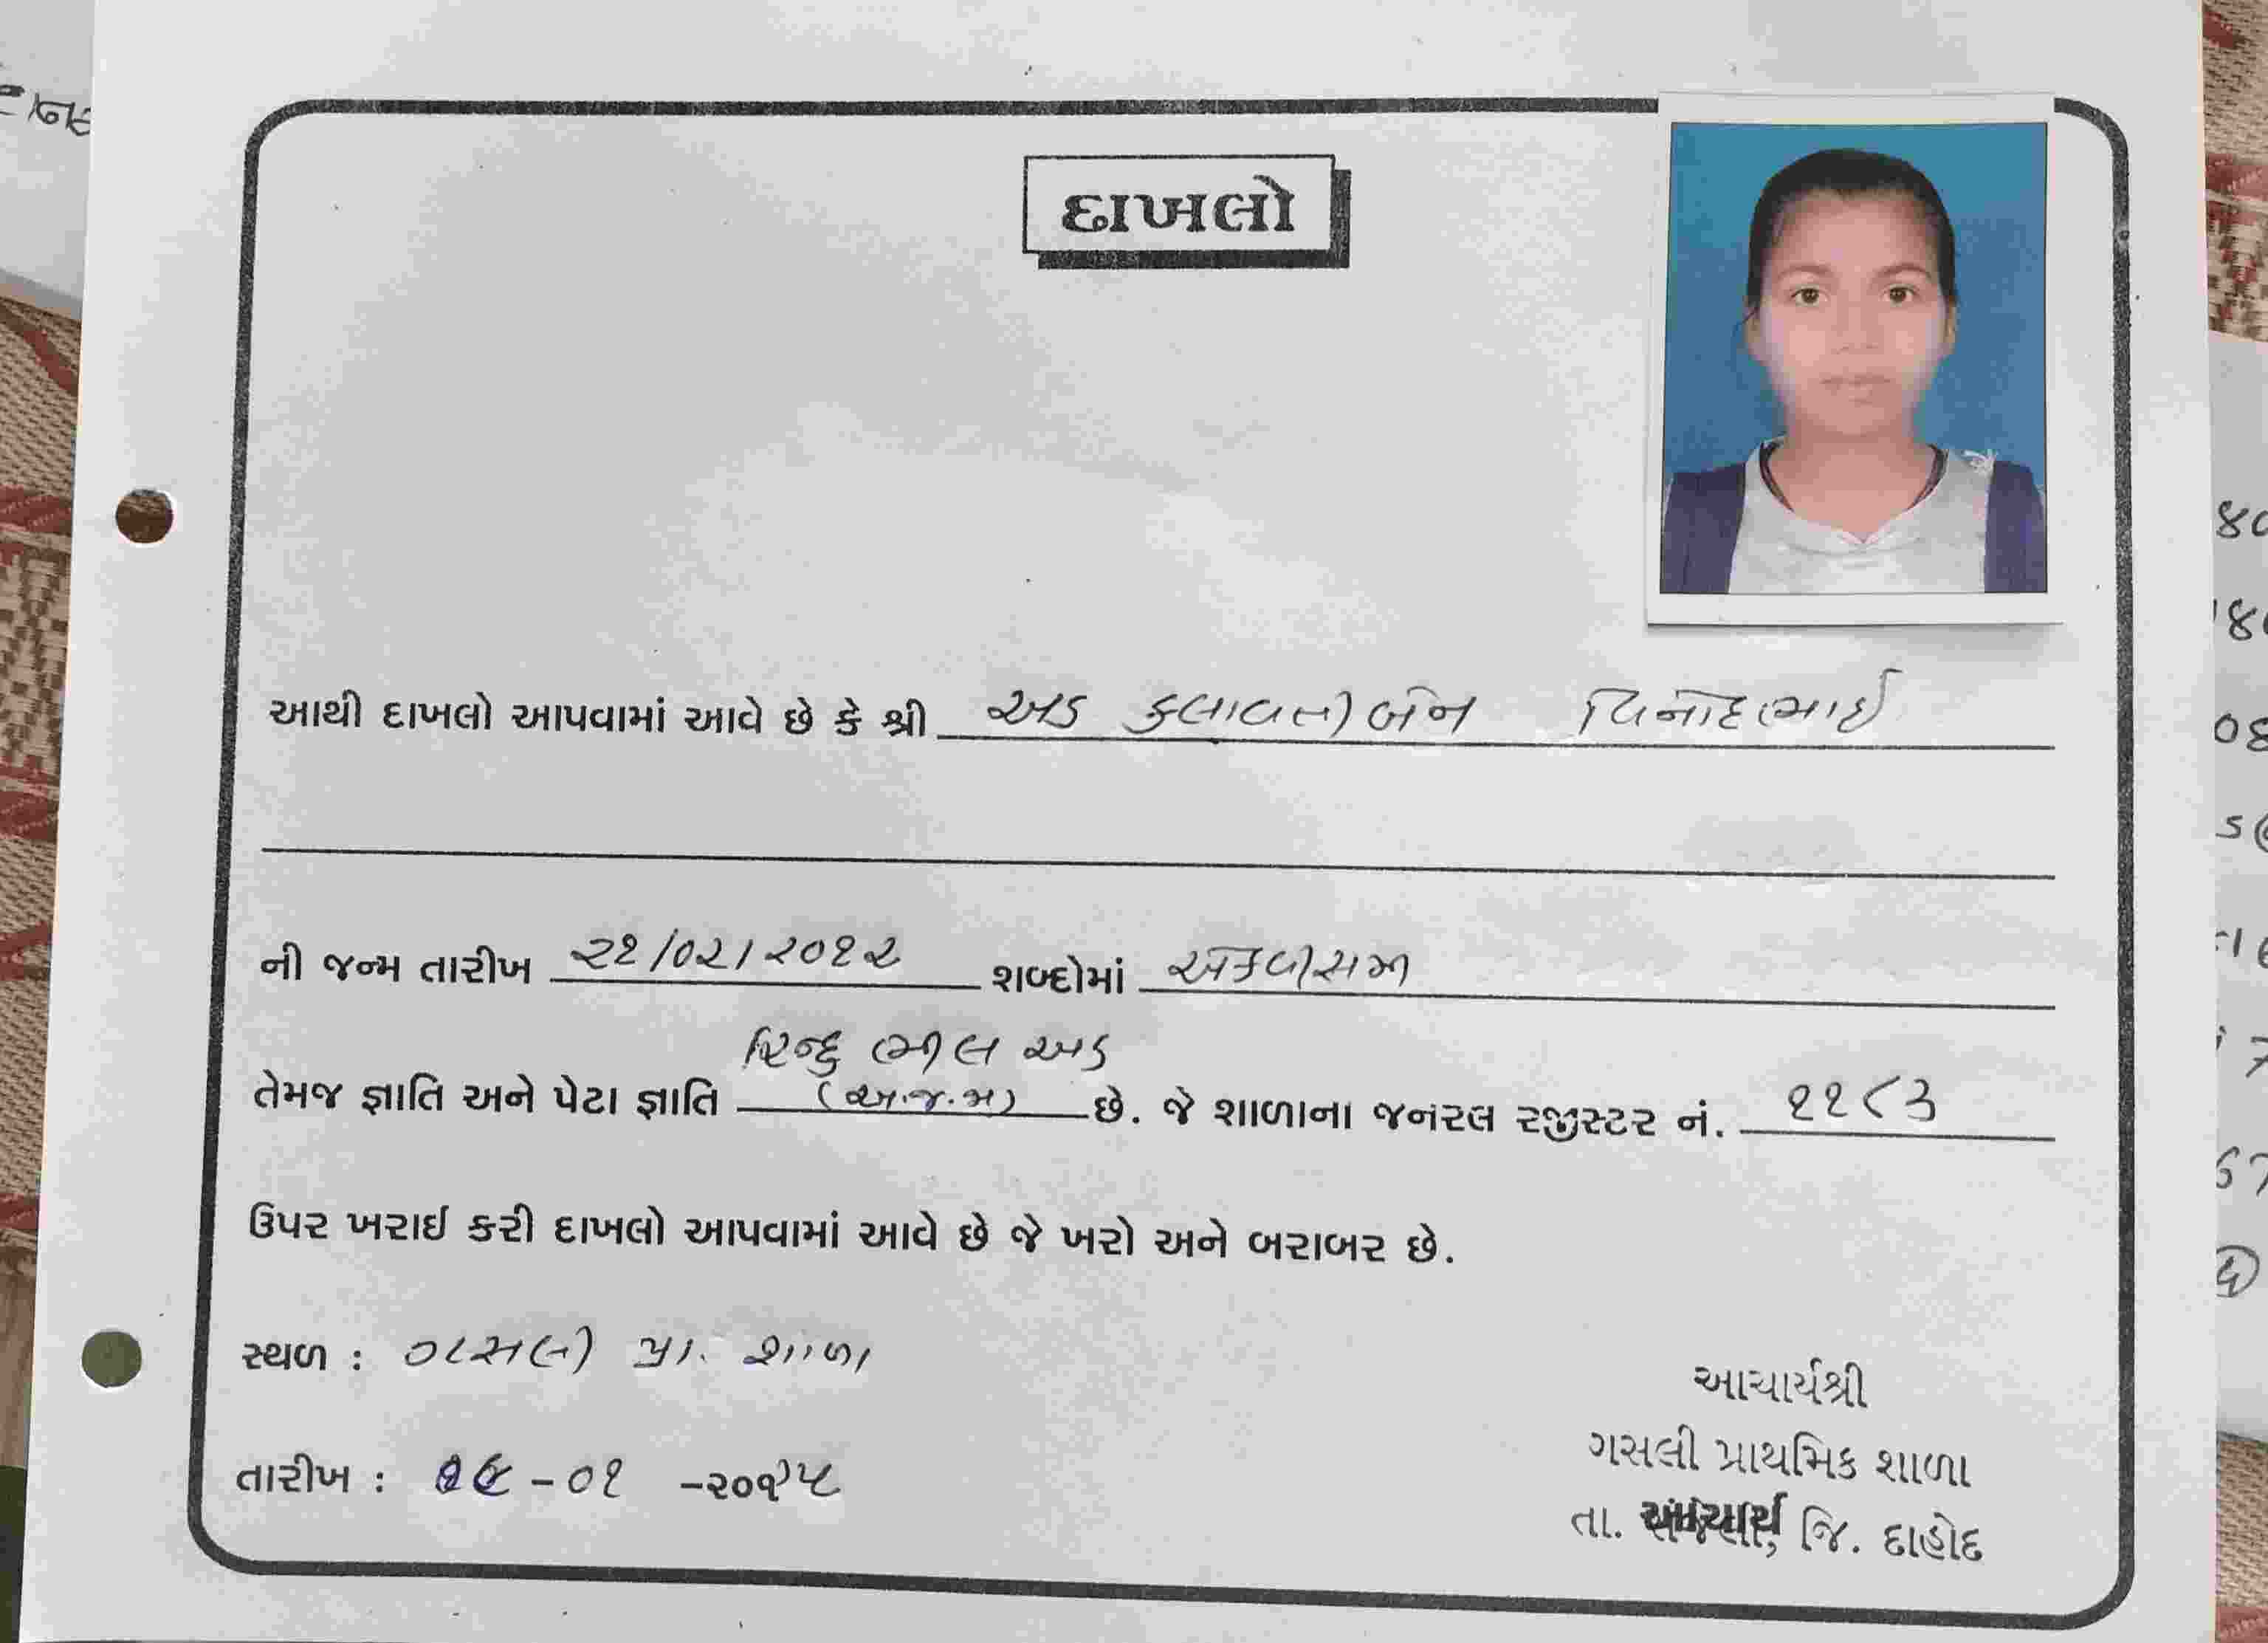 દાખલો
આથી દાખલો આપવામાં આવે છે કે શ્રી અડ કલાવતીબેન વિનોદભાઈ
ની જન્મ તારીખ ૨૧/૦૨/૨૦૧૨ શબ્દોમાં એકવીસમી
હિન્દુ ભીલ અડ
તેમજ જ્ઞાતિ અને પેટા જ્ઞાતિ (અ.જ.જ) છે. જે શાળાના જનરલ રજીસ્ટર નં. ૧૧૮૩
ઉપર ખરાઈ કરી દાખલો આપવામાં આવે છે જે ખરો અને બરાબર છે.
સ્થળ : ગસલી પ્રા. શાળા
આચાર્યશ્રી
ગસલી પ્રાથમિક શાળા
તારીખ : -૦૧ -૨૦૨૫
તા. આચાર્ય જિ. દાહોદ